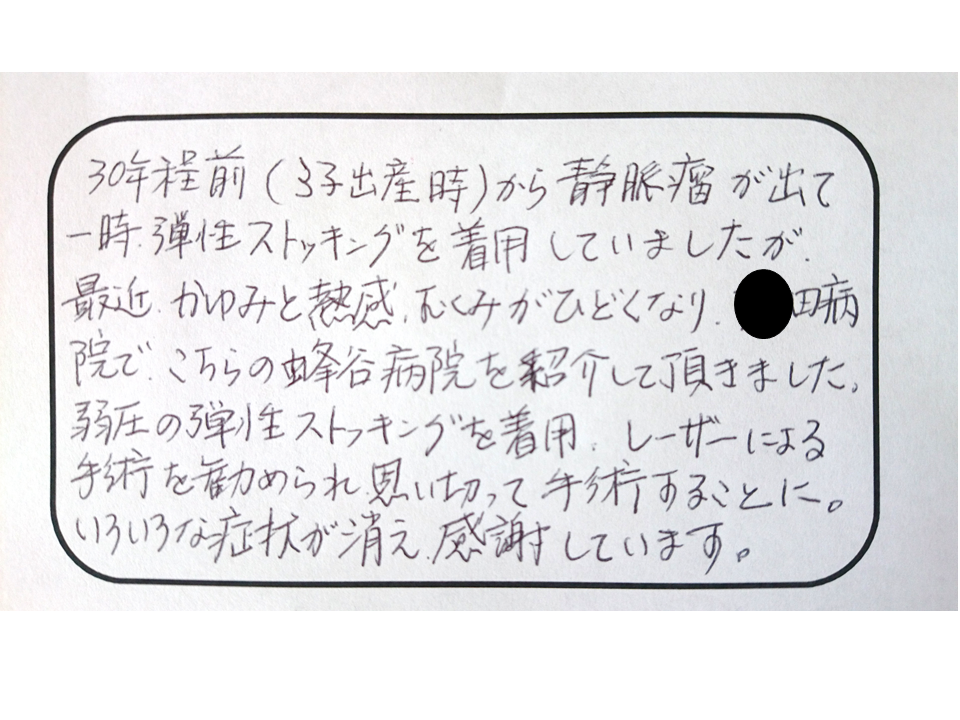 30年程前(3子出産時)から静脈瘤が出て
一時、弾性ストッキングを着用していましたが、
最近、かゆみと熱感、むくみがひどくなり、田病
院で、こちらの蜂谷病院を紹介して頂きました。
弱圧の弾性ストッキングを着用、レーザーによる
手術を勧められ、思い切って手術することに。
いろいろな症状が消え、感謝しています。